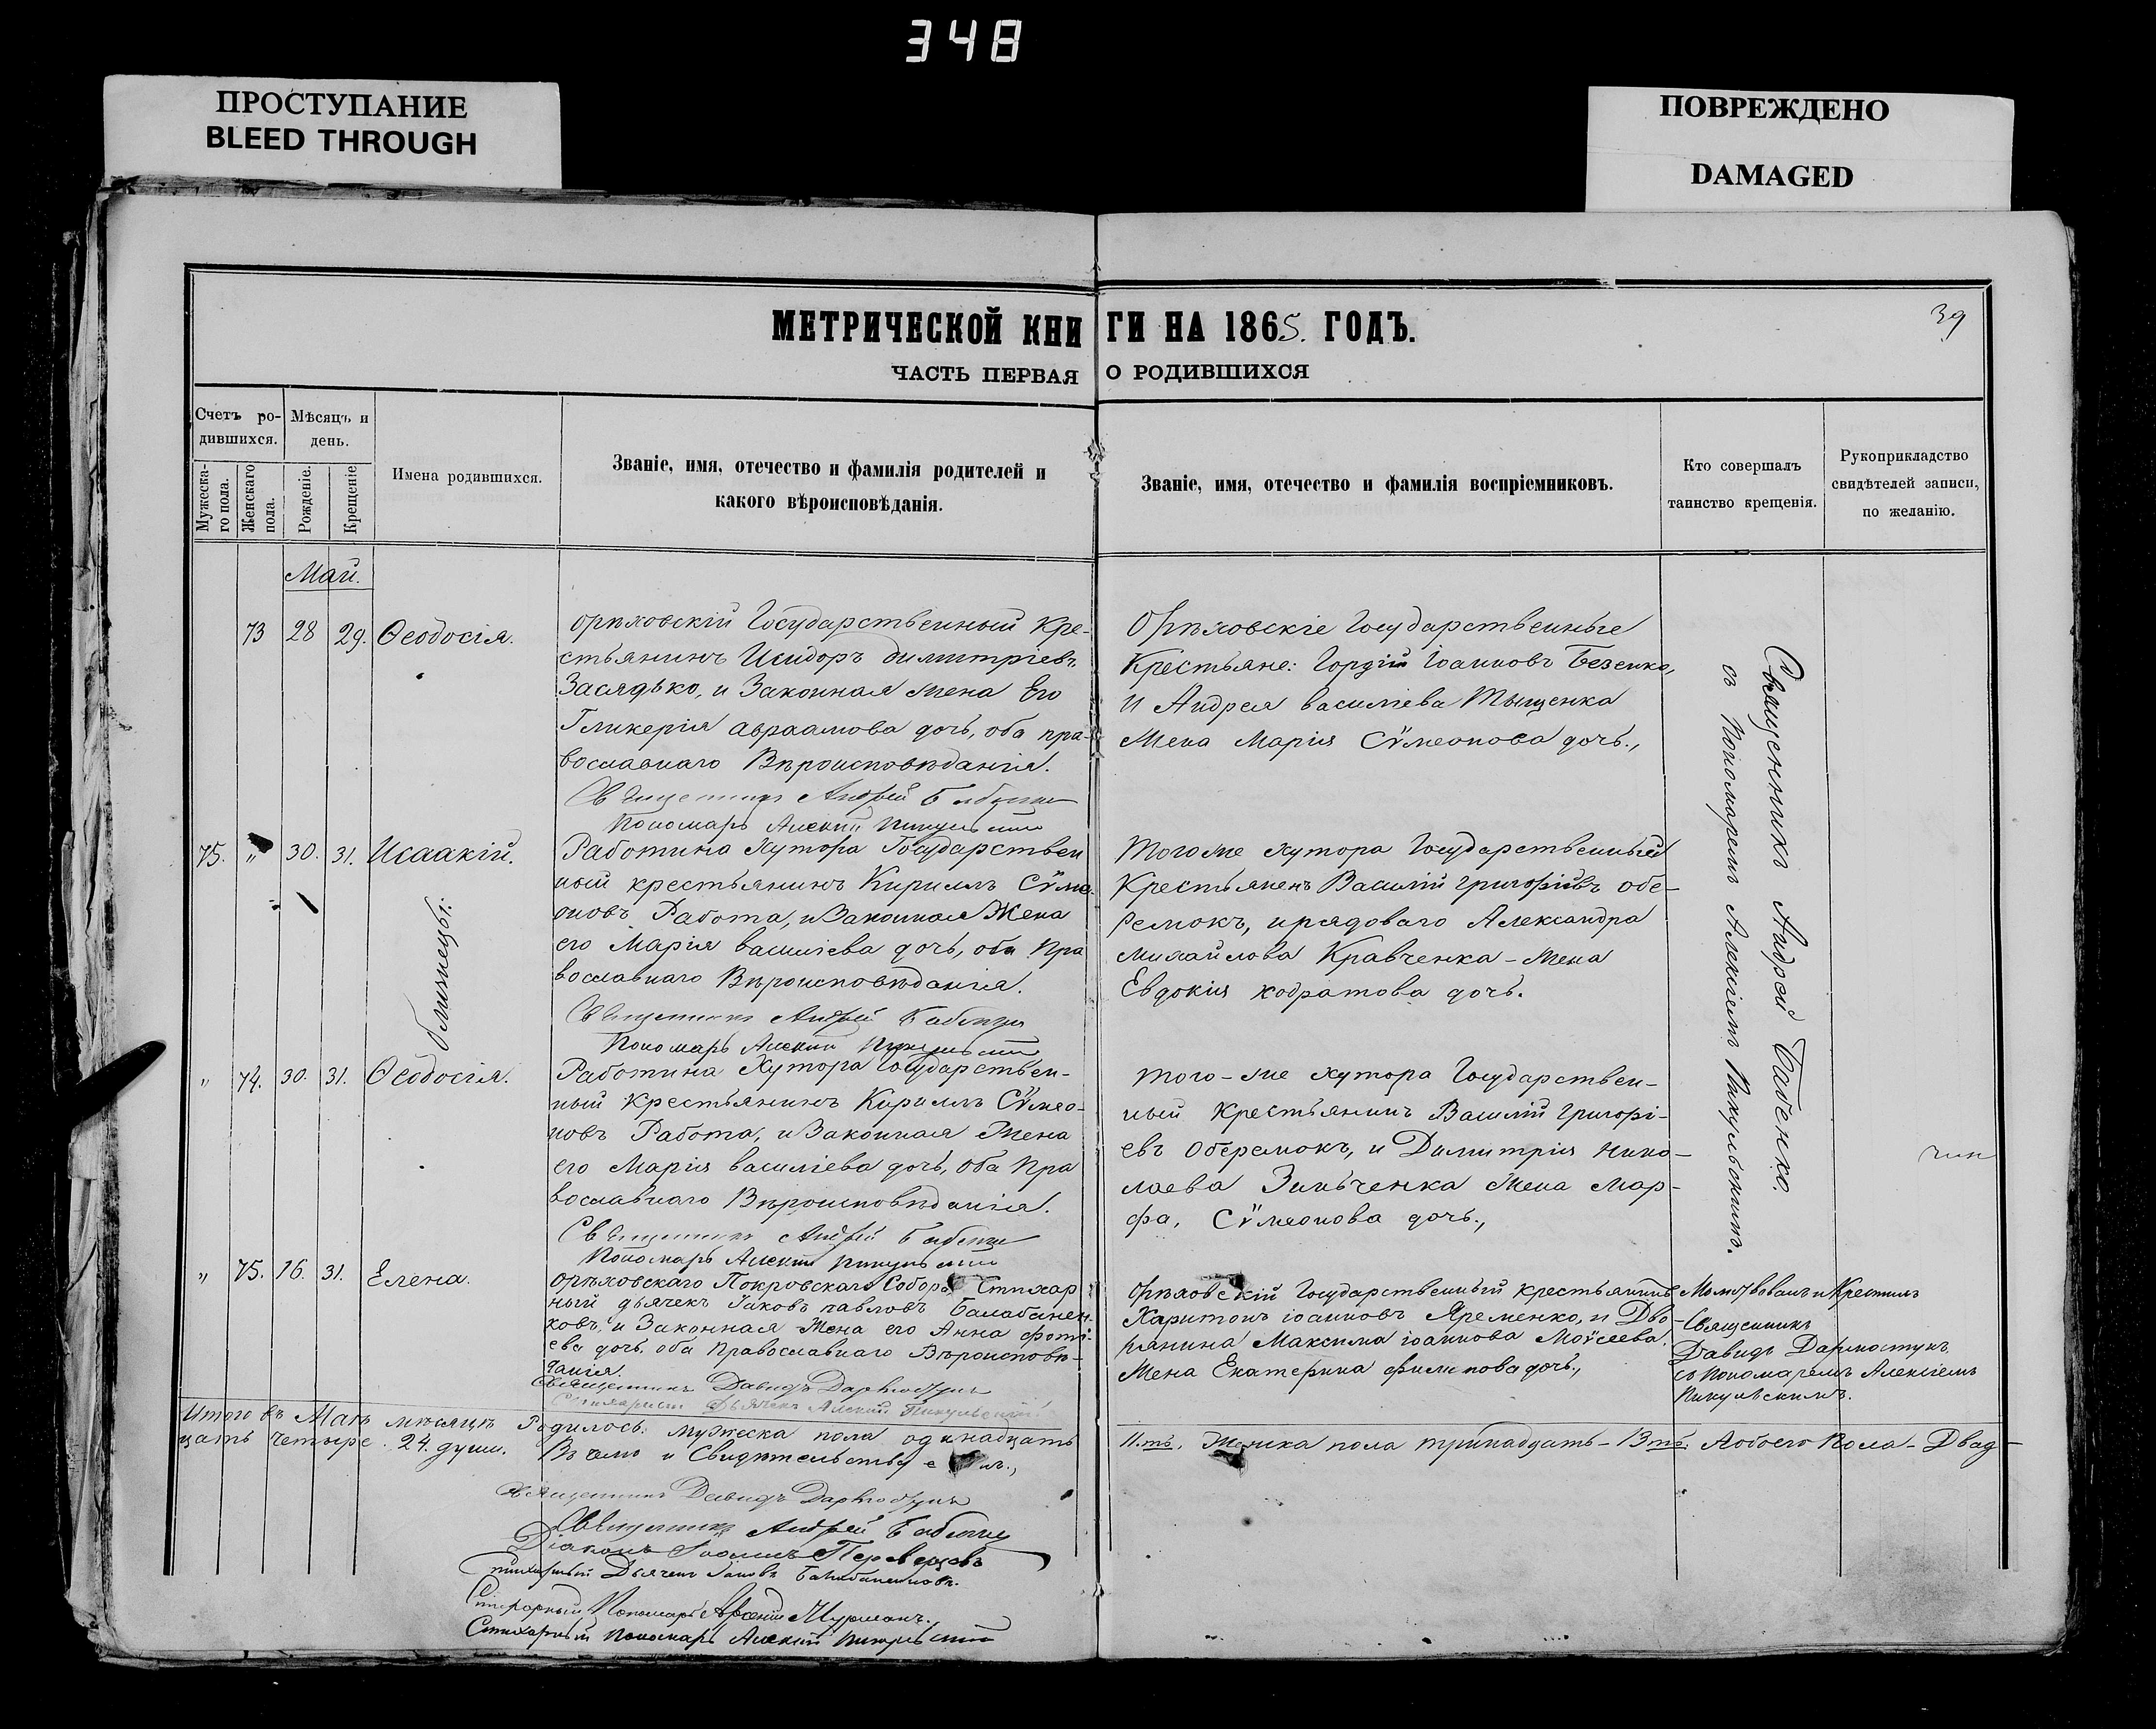 348
ПРОСТУПАНИЕ
BLEED THROUGH
ПОВРЕЖДЕНО
DAMAGED
МЕТРИЧЕСКОЙ КНИГИ НА 1865. ГОДЪ.
39
ЧАСТЬ ПЕРВАЯ О РОДИВШИХСЯ
Счетъ ро-
дившихся.
Мужеска-
го пола.
Женскаго
пола.
Мѣсяцъ и
день.
Рожденіе.
Крещеніе
Имена родившихся.
Званіе, имя, отечество и фамилія родителей и
какого вѣроисповѣданія.
Званіе, имя, отечество и фамилія воспріемниковъ.
Кто совершалъ
таинство крещенія.
Рукоприкладство
свидѣтелей записи,
по желанію.
Май.
73 28 29. Ѳеодосія.
Орѣховскій Государственный Кре-
стьянинъ Исидоръ Димитріевъ
Засядько, и Законная жена Его
Гликерія Авраамова дочь, оба пра-
вославнаго Вѣроисповѣданія.
Священникъ Андрей Бабенко
Пономарь Алексій Пикульскій
Орѣховскіе Государственные
Крестьяне: Гордій Іоанновъ Безенко,
И Андрея Василіева Тыщенка
жена Марія Сѵмеонова дочь.,
75. " 30. 31. Исаакій.
Работина Хутора Государствен
ный крестьянинъ Кириллъ Сѵме-
оновъ Работа, и Законная Жена
его Марія Василіева дочь, оба Пра
вославнаго Вѣроисповѣданія.
Священникъ Андрей Бабенко
Пономарь Алексій Пикульскій
Тогоже хутора Государственный
Крестьянинъ Василій Григоріевъ Обе-
ремокъ, и рядоваго Александра
Михайлова Кравченка - жена
Евдокія Кодратова дочь.
близнецы:
" 74. 30. 31. Ѳеодосія.
Работина Хутора Государствен-
ный Крестьянинъ Кириллъ Сѵмео-
новъ Работа, и Законная Жена
его Марія Василіева дочь, оба Пра
вославнаго Вѣроисповѣданія.
Священникъ Андрей Бабенко
Пономарь Алексій Пикульскій
того-же хутора Государствен-
ный Крестьянинъ Василій Григорі-
евъ Оберемокъ, и Димитрія Нико-
лаева Зинченка Жена Мар-
фа, Сѵмеонова дочь.,
Священникъ Андрей Бабенко.
съ Пономаремъ Алексіемъ Пикульскимъ.
" 75. 16. 31. Елена.
Орѣховскаго Покровскаго Собора Стихар
ный дьячекъ Іаковъ Павловъ Балабанен-
ковъ, и Законная Жена его Анна Фоті-
ева дочь, оба Православнаго Вѣроисповѣ-
данія.
Священникъ Давидъ
Дьячекъ Алексій Пикульскій
Орѣховскій Государственный крестьянинъ
Харитонъ Іоанновъ Яременко, и Дво-
рянина Максима Іоаннова Моѵсеева
Жена Екатерина Филипова дочь.,
Молитвовалъ и Крестилъ
Священникъ
Давидъ
съ Пономаремъ Алексіемъ
Пикульскимъ.
Итого въ Маѣ мѣсяцѣ Родилось: мужеска пола одинадцать 11.ть. Женска пола тринадцать - 13ть: Обоего Пола - Двад-
цать четыре. 24. души. Въ чемъ и Свидѣтельствуемъ.,
Священникъ Давидъ
Священникъ Андрей Бабенко
Діаконъ Іоаннъ Переверзевъ
Стихарный Дьячекъ Іаковъ Балабаненковъ.
Стихарный Пономарь
Стихарный Пономарь Алексій Пикульскій